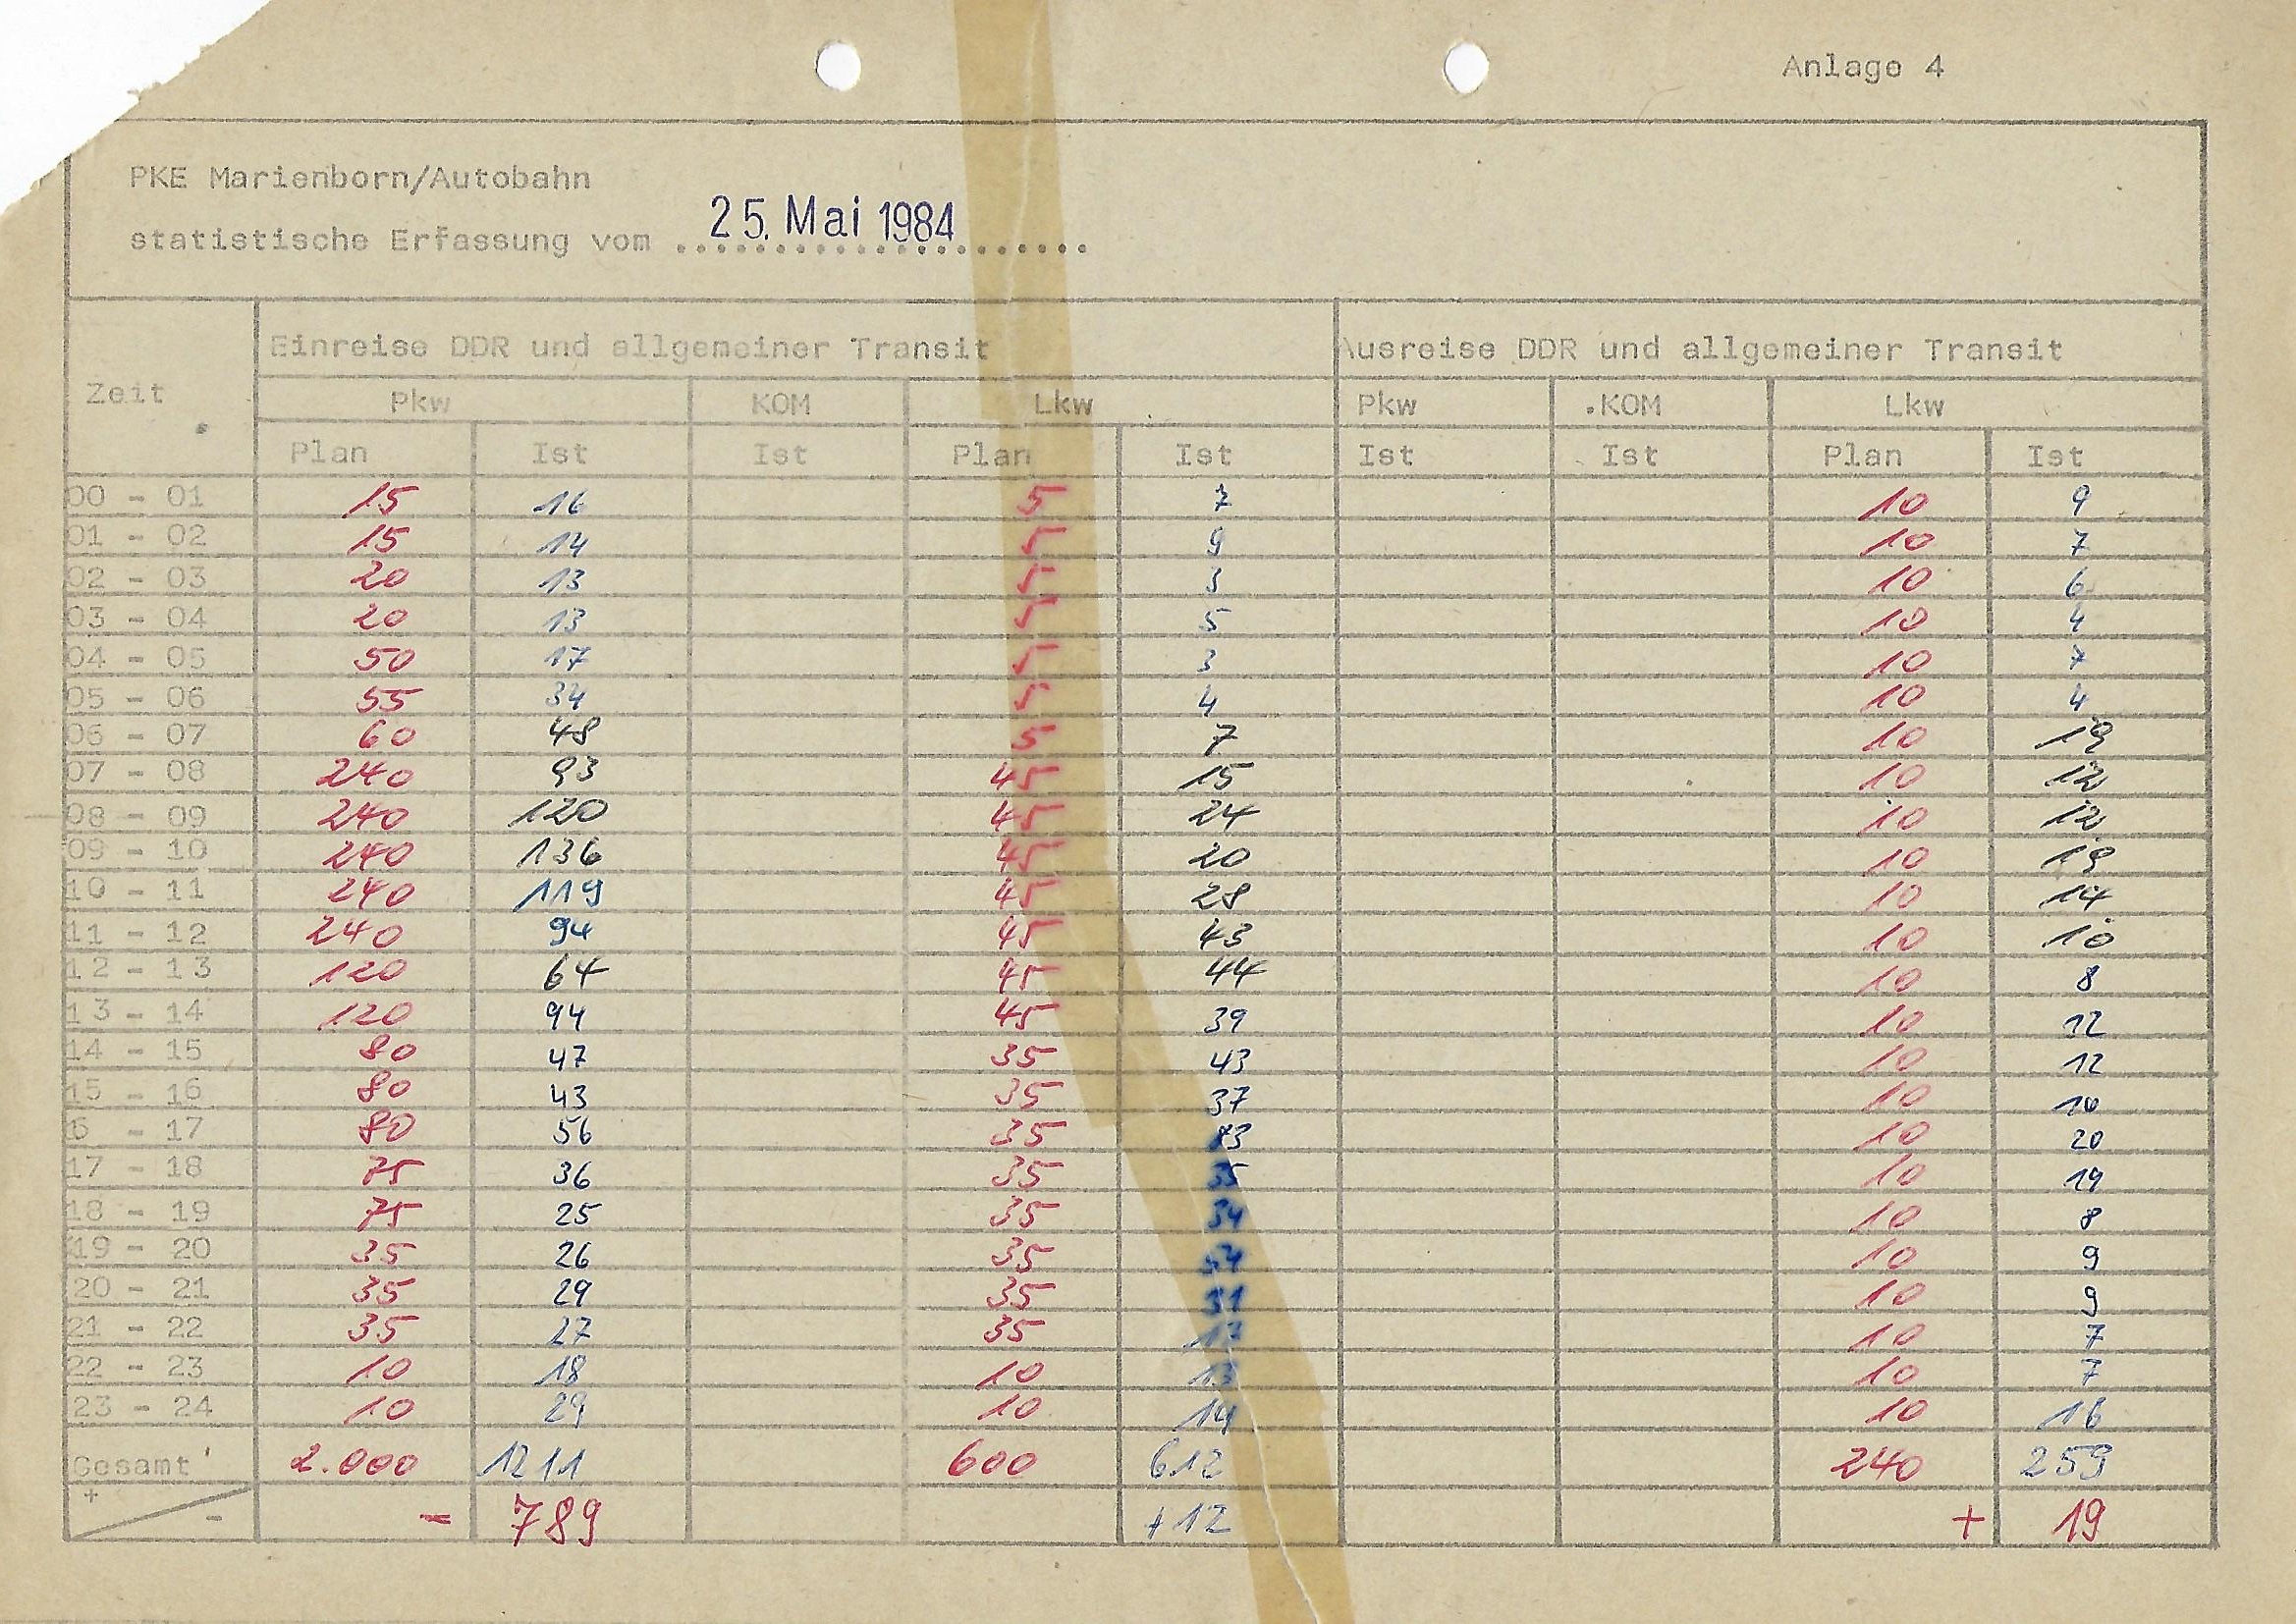 Anlage 4
PKE Marienborn/Autobahn
statistische Erfassung vom 25. Mai 1984
Einreise DDR und allgemeiner Transit Ausreise DDR und allgemeiner Transit
Zeit
Pkw KOM Lkw Pkw .KOM Lkw
Plan Ist Ist Plan Ist Ist Ist Plan Ist
00 - 01 15 16 5 7 10 9
01 - 02 15 14 5 9 10 7
02 - 03 20 13 5 3 10 6
03 - 04 20 13 5 5 10 4
04 - 05 50 17 5 3 10 7
05 - 06 55 34 5 4 10 4
06 - 07 60 48 5 7 10
07 - 08 240 93 45 15 10 12
08 - 09 240 120 45 24 10 12
09 - 10 240 136 45 20 10
10 - 11 240 119 45 28 10 14
11 - 12 240 94 45 43 10 10
12 - 13 120 64 45 44 10 8
13 - 14 120 94 45 39 10 12
14 - 15 80 47 35 43 10 12
15 - 16 80 43 35 37 10
6 - 17 80 56 35 83 10 20
17 - 18 75 36 35 35 10 19
18 - 19 75 25 35 34 10 8
19 - 20 35 26 35 54 10 9
20 - 21 35 29 35 31 10 9
21 - 22 35 27 35 17 10 7
22 - 23 10 18 10 13 10 7
23 - 24 10 29 10 14 10 16
Gesamt 2.000 1211 600 612 240 259
+ - - 789 +12 + 19